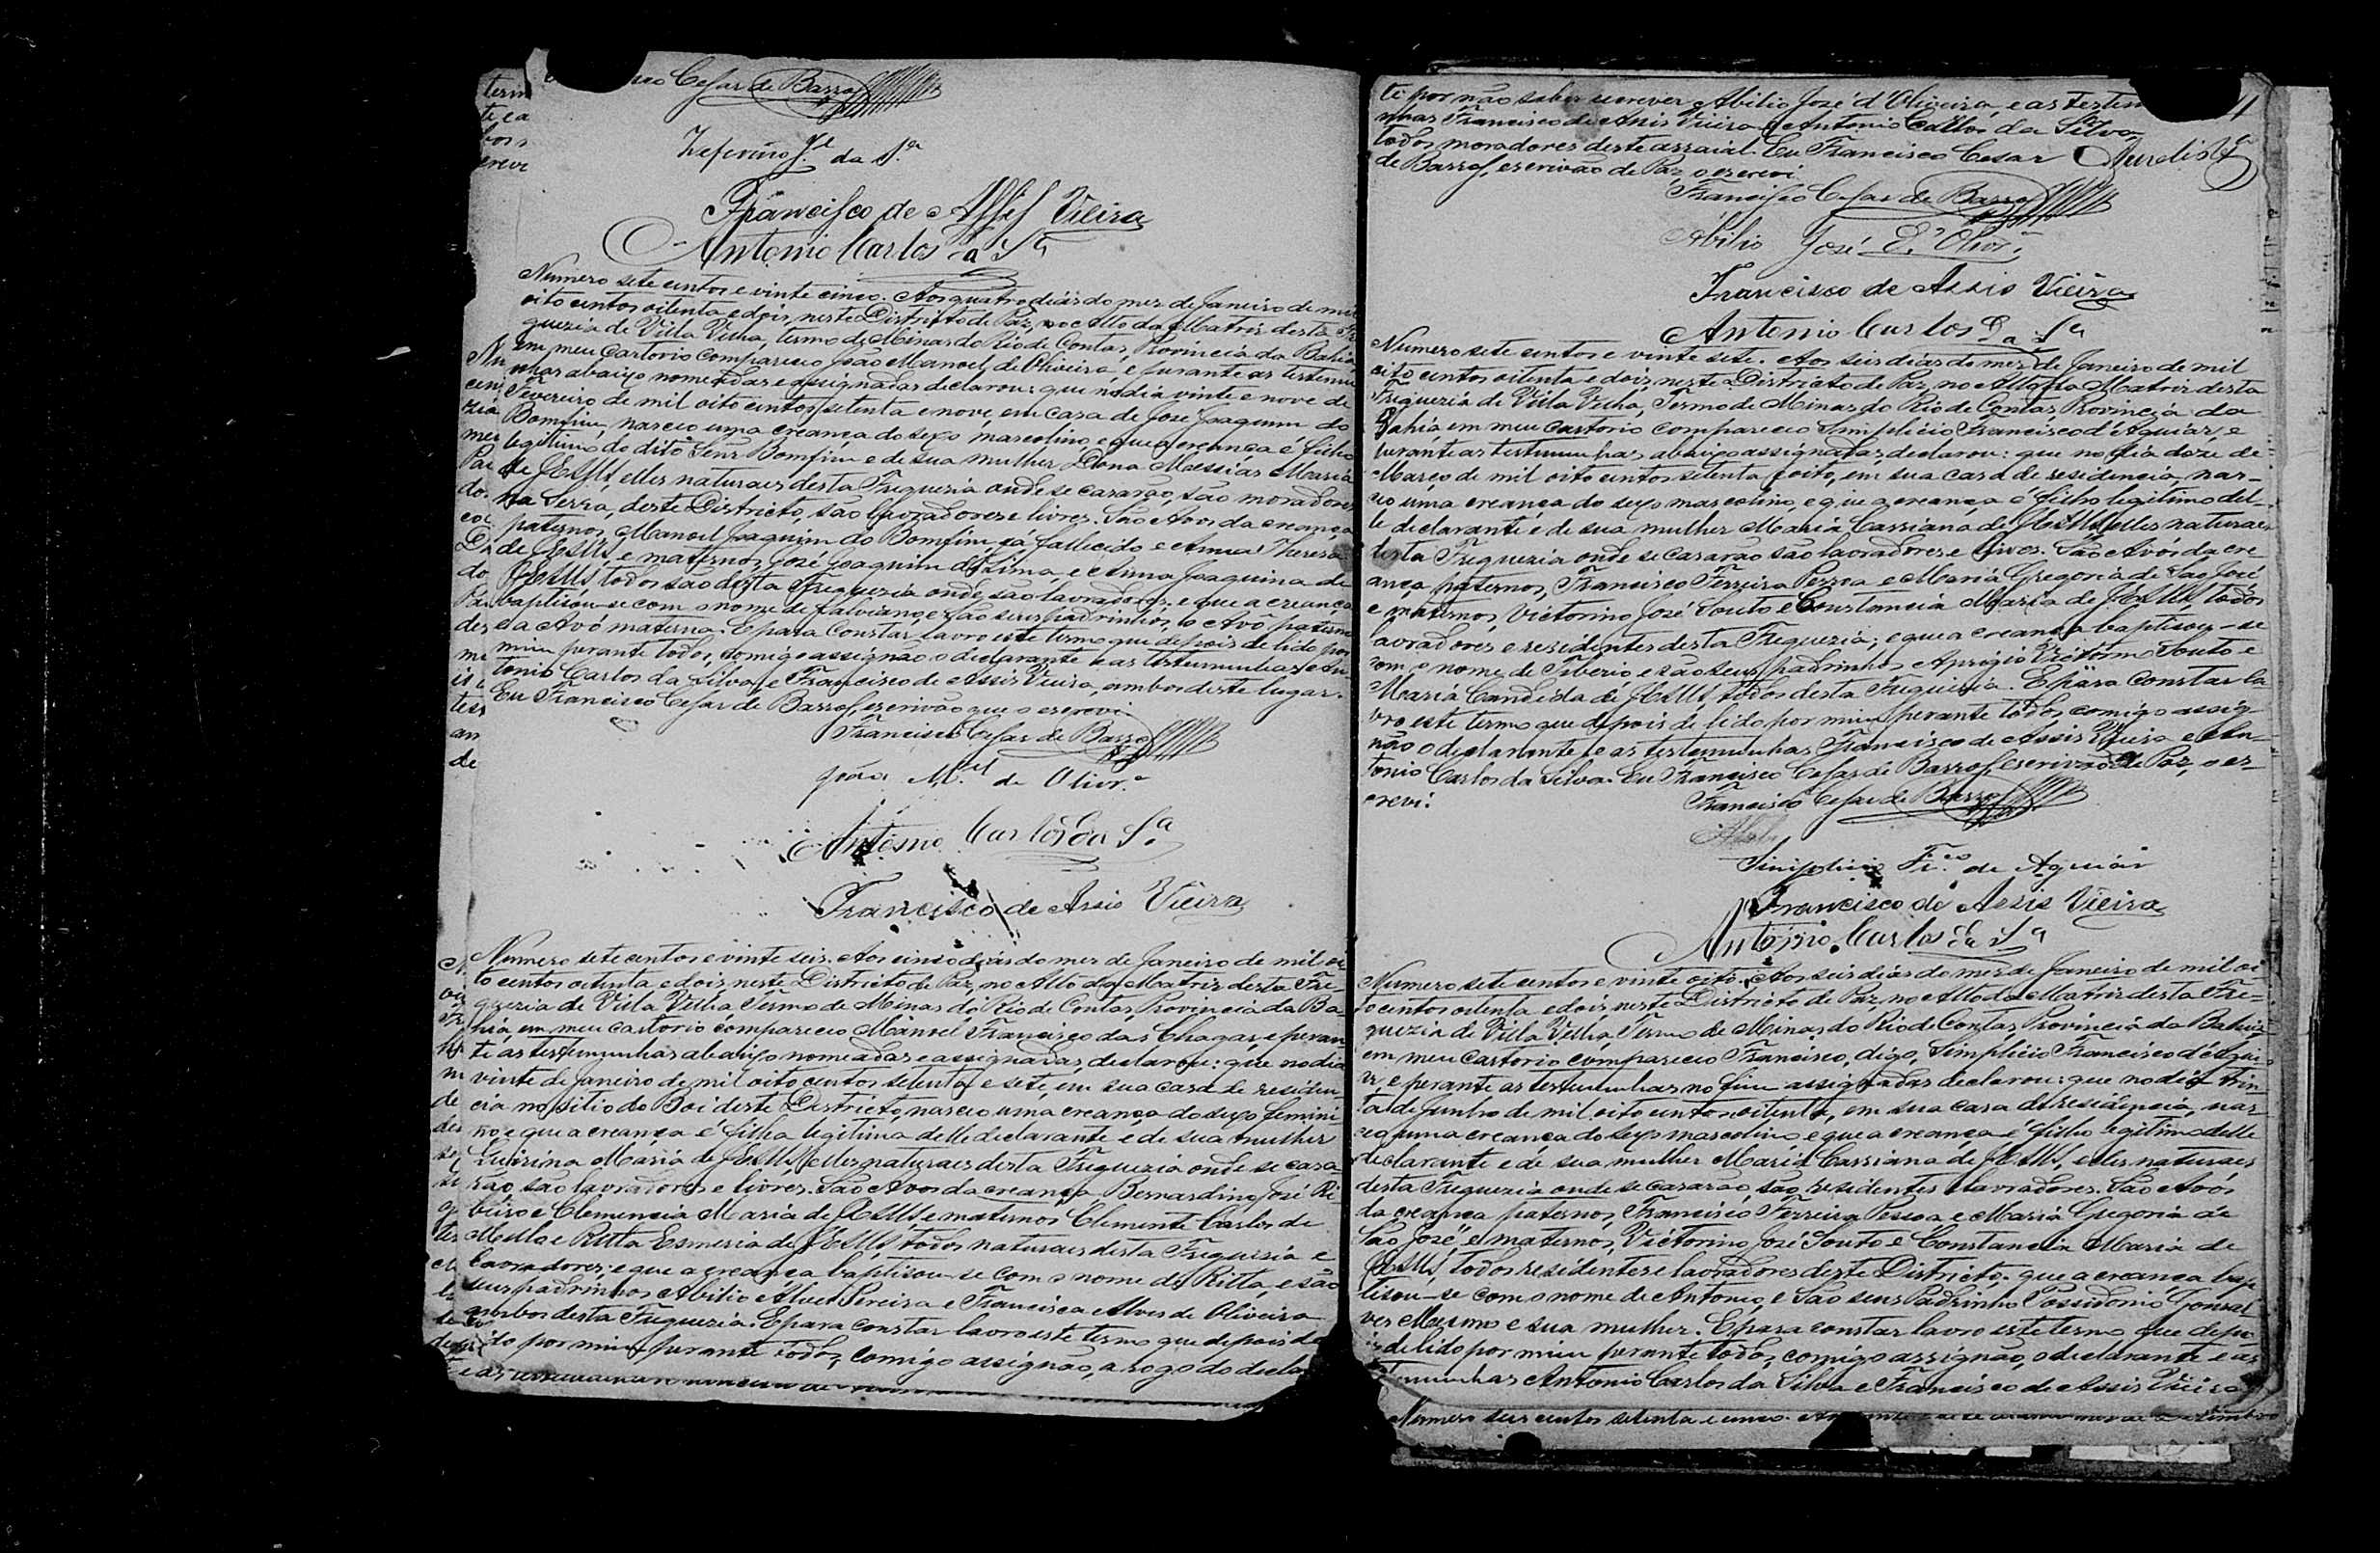 Francisco Cesar de Barros
Zeferino Je. da Sa.
Francisco de Assis Vieira
Antonio Carlos da Sa
Numero sete centos e vinte cinco. Aos quatro dias do mez de Janeiro de mil
oito centos oitenta e dois, neste Districto de Paz, no Alto da Matriz desta Fre
guezia de Villa Velha, termo de Minas do Rio de Contas, Provincia da Bahia
em meu Cartorio compareceo João Manoel de Oliveira, e perante as testemu
nhas abaixo nomeadas e assignadas declarou: que no dia vinte e nove de
Fevereiro de mil oito centos setenta e nove, em casa de José Joaquim do
Bomfim, nasceo uma creança do sexo mascolino, e que a creança é filho
legitimo do dito Senr Bomfim e de sua mulher Dona Messias Maria
de JESUS, elles naturaes desta Freguezia onde se casarão, são moradores
na Serra, deste Districto, são lavradores e livres. São Avós da creança
paternos, Manoel Joaquim do Bomfim, já fallecido e Anna Thereza
de JESUS, e maternos, José Joaquim de Lima, e Anna Joaquina de
JESUS todos são desta Freguezia onde são lavradores, e que a creança
baptisou-se com o nome de Galviano, e são seus padrinhos, o Avô paterno
e a Avó materna. E para constar lavro este termo que depois de lido por
mim perante todos, comigo assignão o declarante e as testemunhas An
tonio Carlos da Silva, e Francisco de Assis Vieira, ambos deste lugar.
Eu Francisco Cesar de Barros, escrivão que o escrevi
Francisco Cesar de Barros
João Mel de Olivra
Antonio Carlos da Sa
Francisco de Assis Vieira
Numero sete centos e vinte seis. Aos cinco dias do mez de Janeiro de mil oi
to centos oitenta e dois, neste Districto de Paz, no Alto da Matriz desta Fre-
guezia de Villa Velha, Termo de Minas do Rio de Contas, Provincia da Ba
hia, em meu cartorio compareceo Manoel Francisco das Chagas, e peran
te as testemunhas abaixo nomeadas e assignadas, declarou: que no dia
vinte de Janeiro de mil oito centos setenta e sete, em sua casa de residen
cia no sitio do Boi deste Districto, nasceo uma creança do sexo femini
no, e que a creança é filha legitima delle declarante e de sua mulher
Quirina Maria de JESUS, elles naturaes desta Freguezia onde se casa
rão, são lavradores e livres. São Avós da creança Bernardino José Ri
beiro e Clemencia Maria de JESUS, e maternos Clemente Carlos de
Mello e Ritta Esmeria de JESUS todos naturaes desta Freguezia e
lavradores; e que a creança baptisou-se com o nome de Ritta, e são
seus padrinhos Abilio Alves Pereira e Francisca Alves de Oliveira
ambos desta Freguezia. E para constar lavro este termo que depois de
lido por mim perante todos, comigo assignão, a rogo do decla
te por não saber escrever Abilio José d'Oliveira, e as testem
nhas Francisco de Assis Vieira e Antonio Carlos da Silva,
todos moradores deste arraial. Eu Francisco Cesar
de Barros, escrivão de Paz, o escrevi
Francisco Cesar de Barros
Abilio José d'Olivra
Francisco de Assis Vieira
Antonio Carlos da Sa
Numero sete centos e vinte sete. Aos seis dias do mez de Janeiro de mil
oito centos oitenta e dois, neste Districto de Paz, no Alto da Matriz desta
Freguezia de Villa Velha, Termo de Minas do Rio de Contas, Provincia da
Bahia, em meu cartorio compareceo Simplicio Francisco d'Aguiar, e
perante as testemunhas abaixo assignadas, declarou: que no dia doze de
Março de mil oito centos setenta e oito, em sua casa de residencia, nas-
ceo uma creança do sexo mascolino, e que a creança é filho legitimo del-
le declarante e de sua mulher Maria Cassiana de JESUS, elles naturaes
desta Freguezia onde se casarão são lavradores e livres. São Avós da cre
ança, paternos, Francisco Ferreira Pessoa e Maria Gregoria de São José
e maternos, Victorino José Souto e Constancia Maria de JESUS, todos
lavradores e residentes desta Freguezia; e que a creança baptisou-se
com o nome de Tiberio e são seus padrinhos Aprigio Victorino Souto e
Maria Candida de JESUS, todos desta Freguezia. E para constar la
vro este termo que depois de lido por mim perante todos, comigo assig
não o declarante e as testemunhas Francisco de Assis Vieira e An-
tonio Carlos da Silva. Eu Francisco Cesar de Barros, escrivão de Paz, o es-
crevi.
Francisco Cesar de Barros
Simplicio Frco de Aguiar
Francisco de Assis Vieira
Antonio Carlos da Sa
Numero sete centos e vinte oito. Aos seis dias do mez de Janeiro de mil oi
to centos oitenta e dois, neste Districto de Paz, no Alto da Matriz desta Fre-
guezia de Villa Velha Termo de Minas do Rio de Contas, Provincia da Bahia
em meu cartorio compareceo Francisco, digo, Simplicio Francisco d'Agui
ar, e perante as testemunhas no fim assignadas declarou: que no dia trin-
ta de Junho de mil oito centos oitenta, em sua casa de residencia, nas-
ceo uma creança do sexo mascolino, e que a creança é filho legitimo delle
declarante e de sua mulher Maria Cassiana de JESUS, elles naturaes
desta Freguezia onde se casarão, são residentes e lavradores. São Avós
da creança paternos, Francisco Ferreira Pessoa e Maria Gregoria de
São José e maternos, Victorino José Souto e Constancia Maria de
JESUS, todos residentes e lavradores deste Districto; que a creança bap
tisou-se com o nome de Antonio, e são seus Padrinhos Possidonio Gonsal
ves Maximo e sua mulher. E para constar lavro este termo que depo
is de lido por mim perante todos, comigo assignão, o declarante e as
temunhas Antonio Carlos da Silva e Francisco de Assis Vieira
Numero seis centos setenta e cinco.